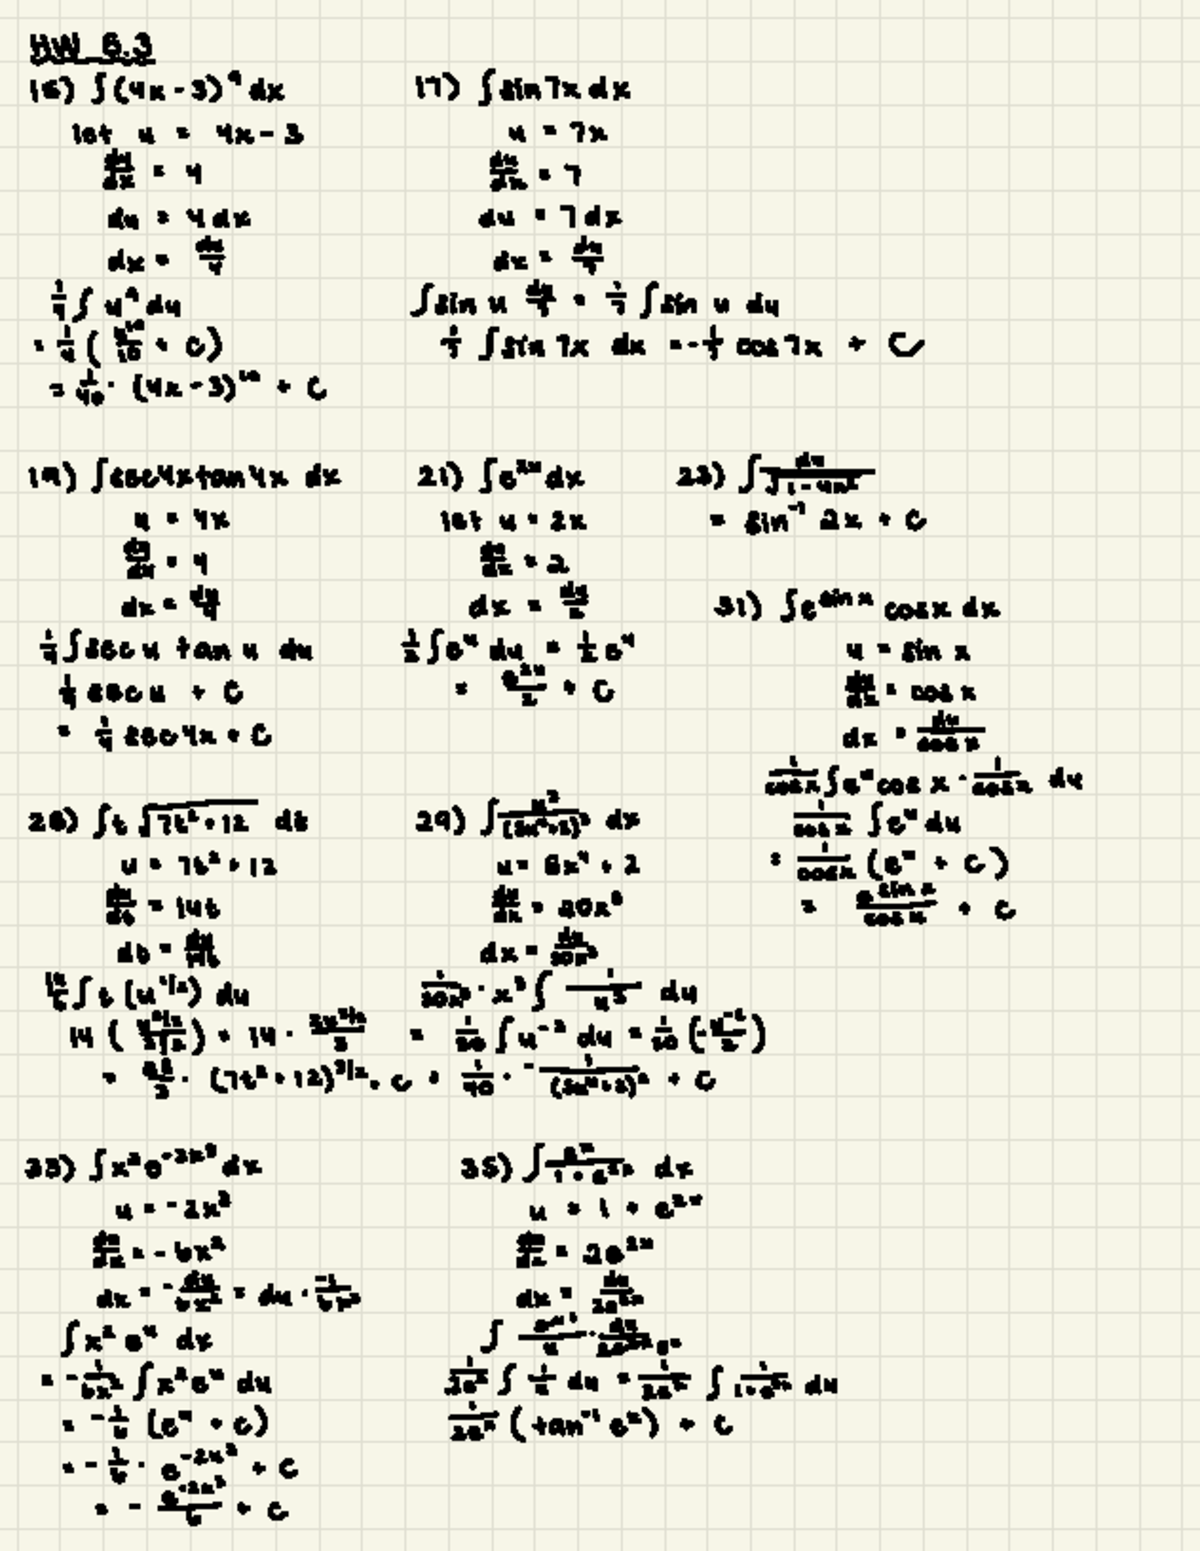 HW 5.3
15) ∫(4x-3)^9 dx
let u = 4x-3
du/dx = 4
du = 4dx
dx = du/4
1/4 ∫ u^9 du
= 1/4 ( u^10/10 + C)
= 1/40 · (4x-3)^10 + C
17) ∫sin7x dx
u = 7x
du/dx = 7
du = 7dx
dx = du/7
∫sin u du/7 = 1/7 ∫sin u du
1/7 ∫sin 7x dx = -1/7 cos7x + C
19) ∫sec4xtan4x dx
u = 4x
du/dx = 4
dx = du/4
1/4 ∫sec u tan u du
1/4 sec u + C
= 1/4 sec4x + C
21) ∫e^2x dx
let u = 2x
du/dx = 2
dx = du/2
1/2 ∫e^u du = 1/2 e^u
= e^2x/2 + C
23) ∫ dx/√(1-4x²)
= sin^-1 2x + C
31) ∫e^sin x cosx dx
u = sin x
du/dx = cos x
dx = du/cos x
1/cosx ∫e^u cos x · 1/cosx du
1/cosx ∫e^u du
= 1/cosx (e^u + C)
= e^sin x/cos x + C
25) ∫t √(7t²+12) dt
u = 7t²+12
du/dt = 14t
dt = du/14t
∫ t (u^1/2) du
14 ( u^3/2/3/2 ) = 14 · 2u^3/2/3
= 28/3 · (7t²+12)^3/2 + C
29) ∫ x³/(5x⁴+2)³ dx
u = 5x⁴ + 2
du/dx = 20x³
dx = du/20x³
1/20x³ · x³ ∫ 1/u³ du
= 1/20 ∫ u^-3 du = 1/20 (-u^-2/2)
= 1/40 · - 1/(5x⁴+2)² + C
33) ∫x²e^-2x³ dx
u = -2x³
du/dx = -6x²
dx = -du/6x² = du · -1/6x²
∫x² e^u dx
= -1/6x² ∫x²e^u du
= -1/6 (e^u + C)
= -1/6 · e^-2x³ + C
= - e^-2x³/6 + C
35) ∫ e^x/1+e^2x dx
u = 1 + e^2x
du/dx = 2e^2x
dx = du/2e^2x
1/2e^x ∫ 1/u du = 1/2e^x ∫ 1/1+e^2x du
1/2e^x (tan^-1 e^x) + C